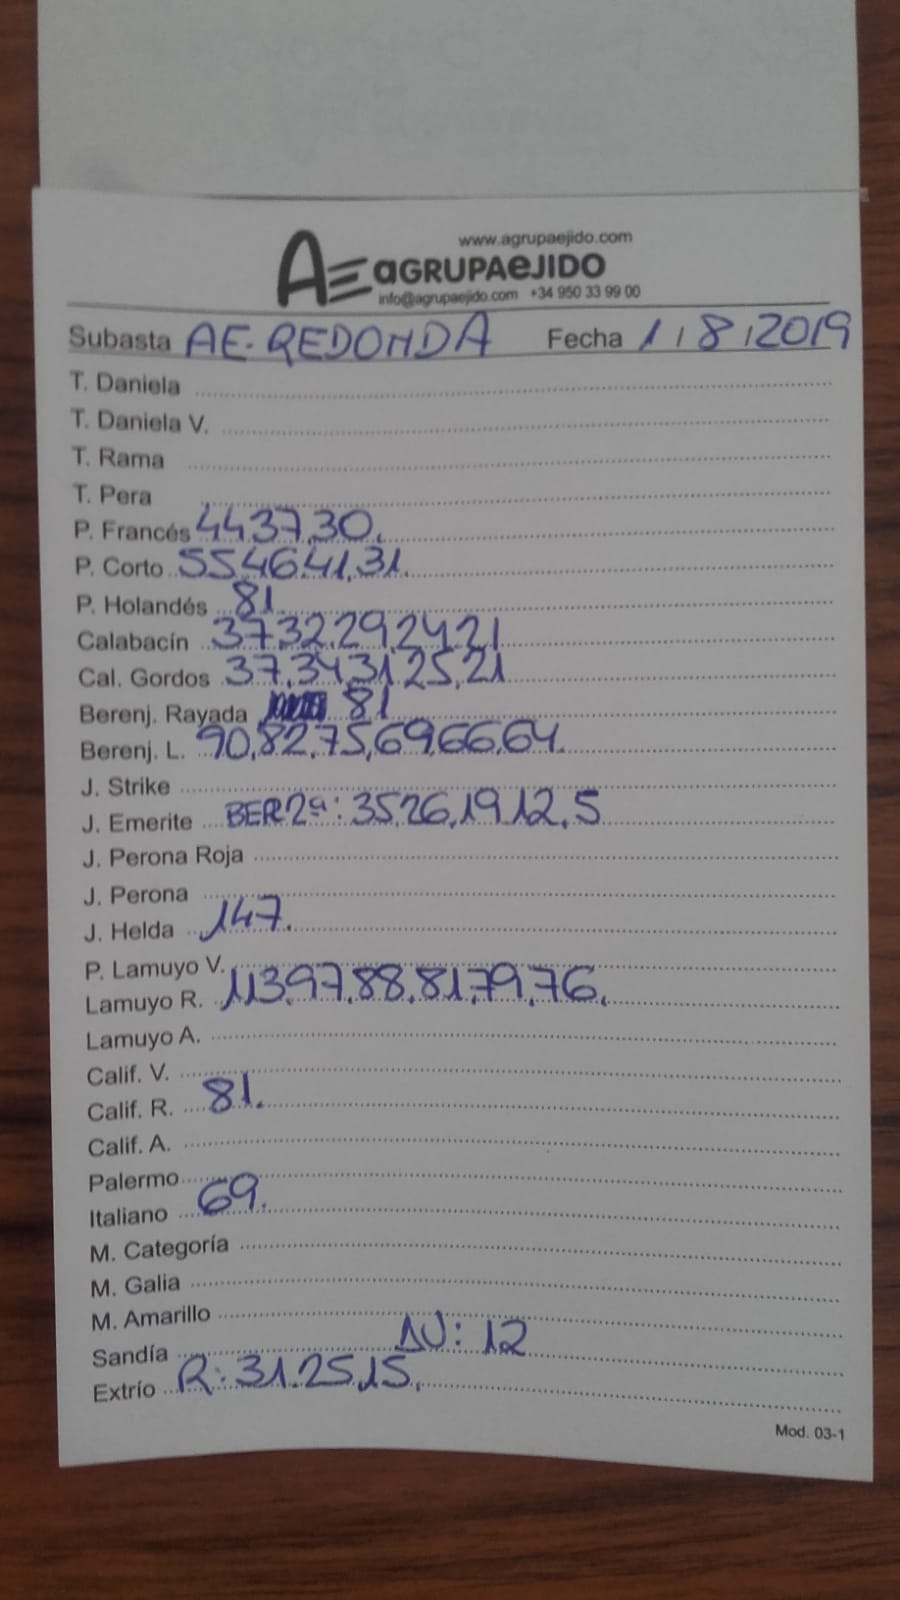 www.agrupaejido.com
AE aGRUPAeJIDO
info@agrupaejido.com +34 950 33 99 00
Subasta AE.REDONDA Fecha 1/8/2019
T. Daniela
T. Daniela V.
T. Rama
T. Pera
P. Francés 44.37.30.
P. Corto 55.46.41.31.
P. Holandés 81.
Calabacín 37.32.29.24.21
Cal. Gordos 37.34.31.25.21
Berenj. Rayada 81
Berenj. L. 90,82,75,69,66,64.
J. Strike
J. Emerite BER2ª: 35,26,19,12,5
J. Perona Roja
J. Perona
J. Helda 147.
P. Lamuyo V.
Lamuyo R. 113,97,88,81,79,76.
Lamuyo A.
Calif. V.
Calif. R. 81.
Calif. A.
Palermo
Italiano 69.
M. Categoría
M. Galia
M. Amarillo
Sandía : 12
Extrío R: 31.25.15.
Mod. 03-1